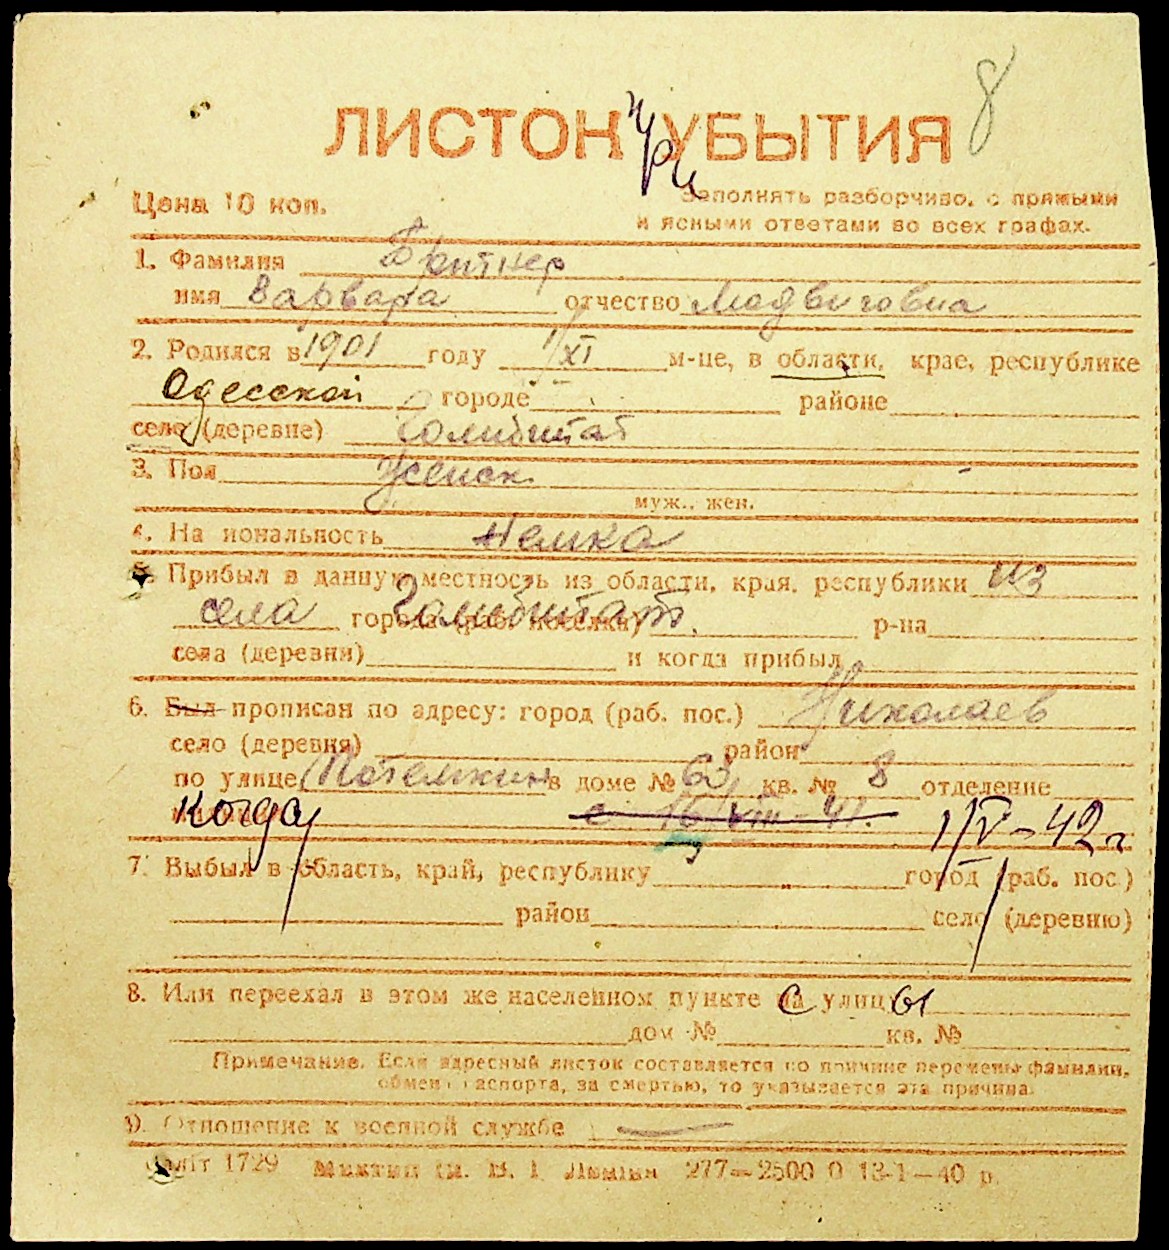 8
ЛИСТОК при УБЫТИЯ
Цена 10 коп.
Заполнять разборчиво, с прямыми
и ясными ответами во всех графах.
1. Фамилия
имя Варвара отчество Людвиговна
2. Родился в 1901 году 1/XI м-це, в области, крае, республике
Одесской городе районе
село (деревне)
3. Пол женск.
муж., жен.
4. Национальность Немка
5. Прибыл в данную местность из области, края, республики из
села города (раб. поселка) р-на
села (деревни) и когда прибыл
6. Был прописан по адресу: город (раб. пос.) Николаев
село (деревня) район
по улице Потемкин в доме № 63 кв. № 8 отделение
когда с 16/VIII-41. 1/V-42 г
7. Выбыл в область, край, республику город (раб. пос.)
район село (деревню)
8. Или переехал в этом же населенном пункте с улицы
дом № кв. №
Примечание. Если адресный листок составляется по причине перемены фамилии,
обмена паспорта, за смертью, то указывается эта причина.
9. Отношение к военной службе —
1729 277—2500 0 13-1—40 р.